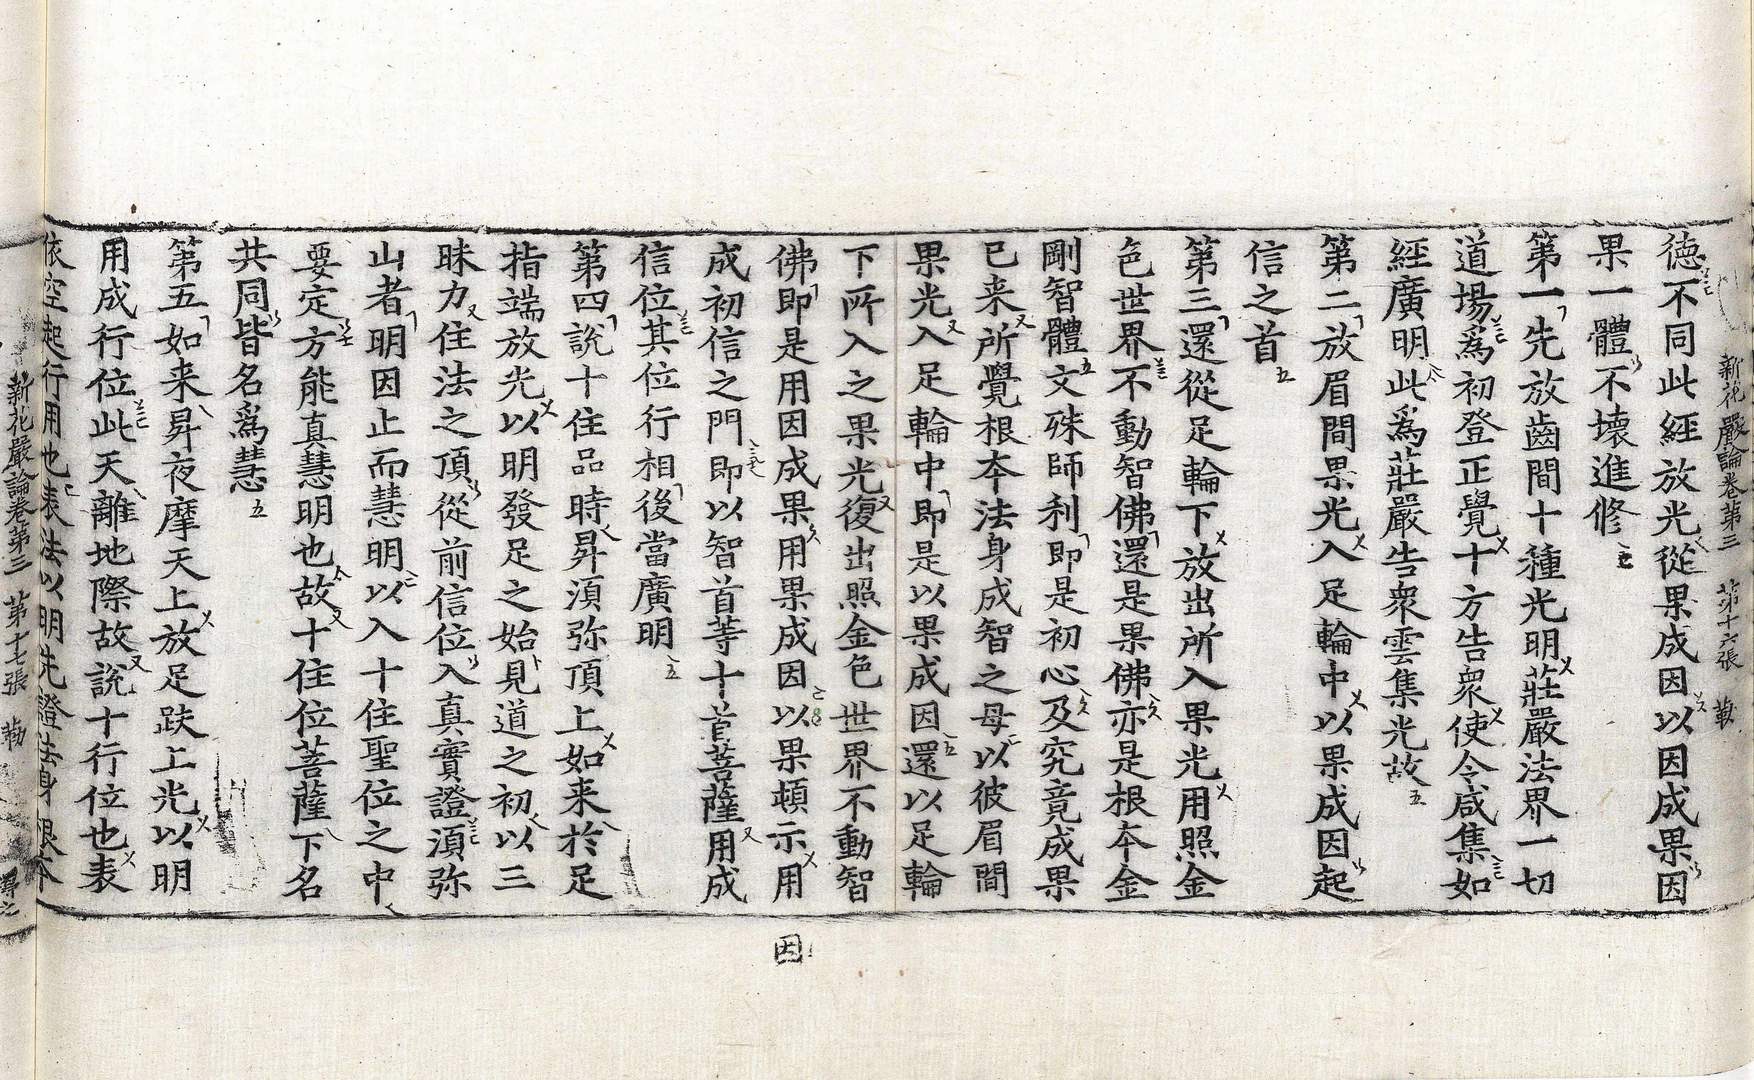 新花嚴論卷第三　第十六張　勒
德不同此經放光從果成因以因成果因
果一體不壞進修
第一先放齒間十種光明莊嚴法界一切
道場爲初登正覺十方告衆使令咸集如
經廣明此爲莊嚴告衆雲集光故
第二放眉間果光入足輪中以果成因起
信之首
第三還從足輪下放出所入果光用照金
色世界不動智佛還是果佛亦是根本金
剛智體文殊師利即是初心及究竟成果
已来所覺根本法身成智之母以彼眉間
果光入足輪中即是以果成因還以足輪
下所入之果光復出照金色世界不動智
佛即是用因成果用果成因以果頓示用
因
成初信之門即以智首等十首菩薩用成
信位其位行相後當廣明
第四說十住品時昇湏弥頂上如来於足
指端放光以明發足之始見道之初以三
昧力住法之頂從前信位入真實證湏弥
山者明因止而慧明以入十住聖位之中
要定方能真慧明也故十住位菩薩下名
共同皆名爲慧
第五如来昇夜摩天上放足趺上光以明
用成行位此天離地際故說十行位也表
依空起行用也表法以明先證法身根本
新花嚴論卷第三　第十七張　勒